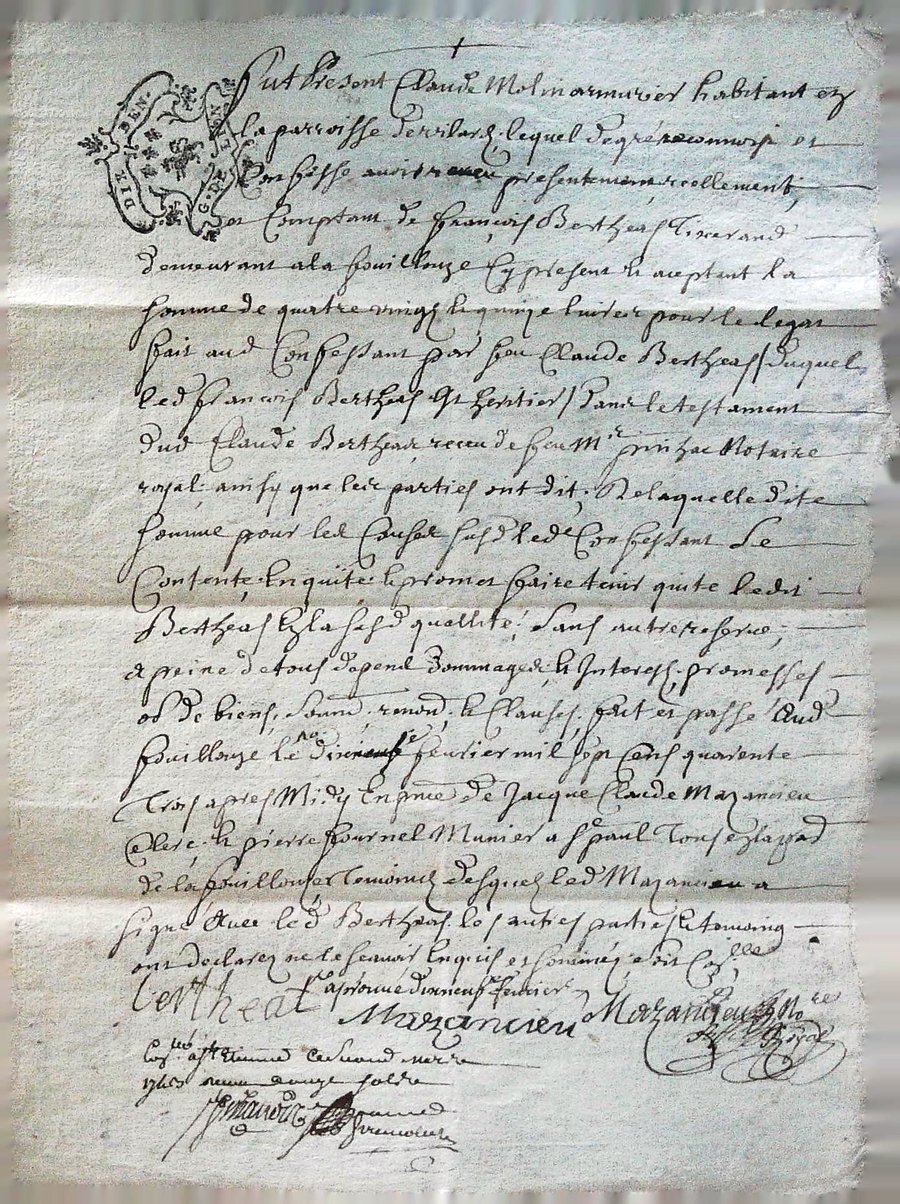 DIX DEN. G. DE LION
Fut Present Claude Molin armurier habitant en
la parroisse lequel de gré reconnoist et
Confesse avoir receu presentement reellement
et Comptant de françois Bertheas Tixerand
demeurant a la fouillouze Cy present & aceptant la
somme de quatre vingt & quinze livres pour le legat
fait aud Confessant par feu Claude Bertheas / duquel
led françois Bertheas est heritier / dans le testament
dud Claude Bertheas receu de feu Mr Notaire
royal ainsy que les parties ont dit, De laquelle dite
somme pour les Causes susd led Confessant Se
Contente, En quite & promet faire tenir quite ledit
Bertheas En la susd quallité, Sans autre reserve,
a peine de tous depend Dommages & Interests, promesses
ob de biens, Soum renond & Clauses, fait et passé Aud
fouillouze le dixneufe fevrier mil sept Cens quarente
Trois apres Midy En pnce de Jacque Claude Mazancieu
Clerc & pierre fournel Munier a St paul
de la fouillouze Temoins desquels led Mazancieu a
signé Avec led Bertheas les autres parties & temoing
ont declarez ne le scavoir Enquis et sommez
bertheas aprouve dixneuf fevrier
Mazancieu Mazancieu Nore Royal
Coll a St Etienne
1743 douze solz